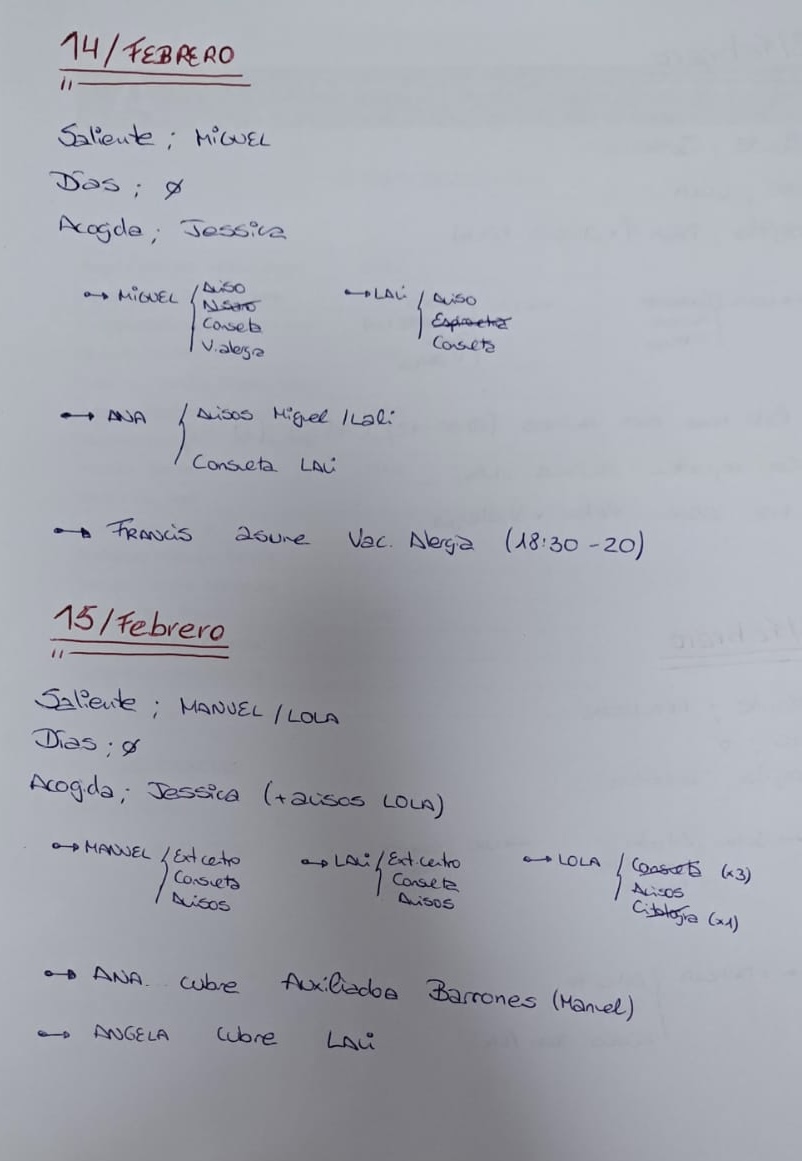 14/FEBRERO
Saliente; MIGUEL
Días; ø
Acogida; Jessica
→ MIGUEL { Aviso
Consulta
V. alergia
→ LALI { Aviso
Espirometría
Consulta
→ ANA { Avisos Miguel / Lali
Consulta LALI
→ FRANCIS asume Vac. Alergia (18:30-20)
15/Febrero
Saliente; MANUEL / LOLA
Días; ø
Acogida; Jessica (+ avisos LOLA)
→ MANUEL { Ext centro
Consulta
Avisos
→ LALI { Ext. centro
Consulta
Avisos
→ LOLA { Consulta (x3)
Avisos
Citología (x1)
→ ANA cubre Auxiliadora Barrones (Manuel)
→ ANGELA cubre LALI